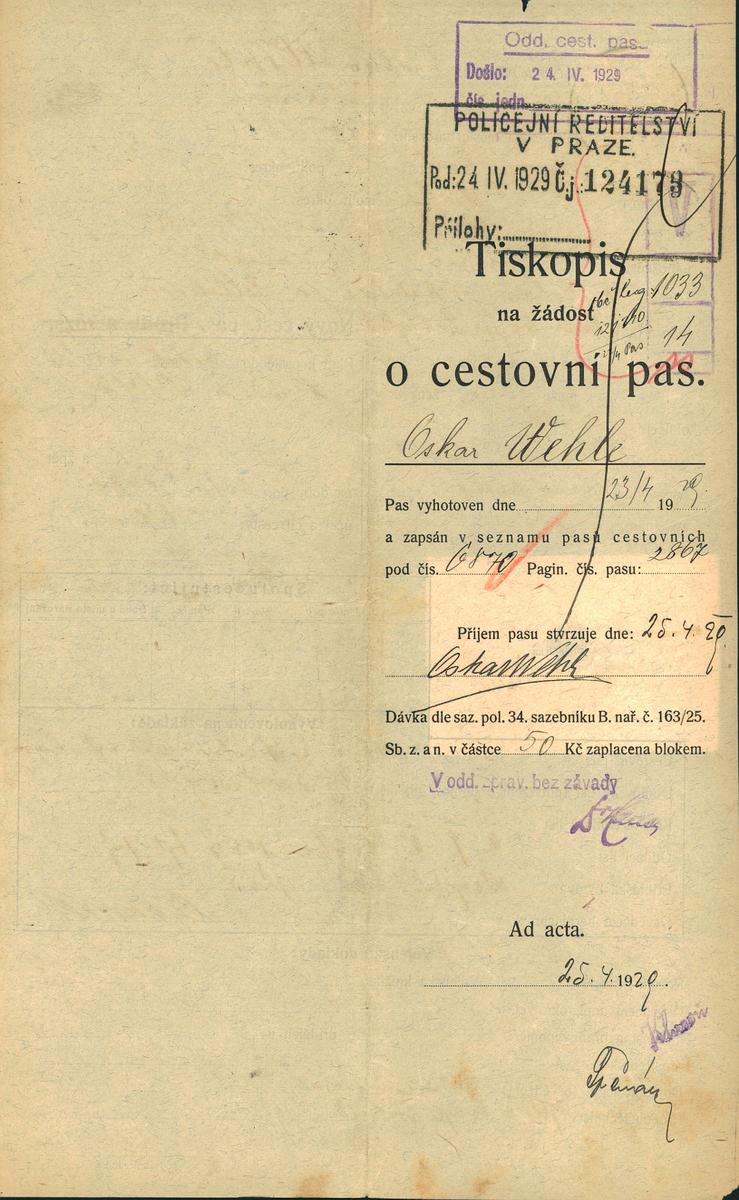 Odd. cest. pas.
Došlo: 24. IV. 1929
čís. jedn.
POLICEJNÍ ŘEDITELSTVÍ
V PRAZE.
Pod: 24 IV. 1929 Č.j.: 124173
Přílohy:
Tiskopis
1033
na žádost
14
o cestovní pas.
Oskar Wehle
Pas vyhotoven dne 23/4 1929.
a zapsán v seznamu pasů cestovních
pod čís. 6870 Pagin. čís. pasu: 2867
Příjem pasu stvrzuje dne: 25. 4. 29
Oskar Wehle
Dávka dle saz. pol. 34. sazebníku B. nař. č. 163/25.
Sb. z. a n. v částce 50 Kč zaplacena blokem.
V odd. zprav. bez závady
Ad acta.
25. 4. 1929.